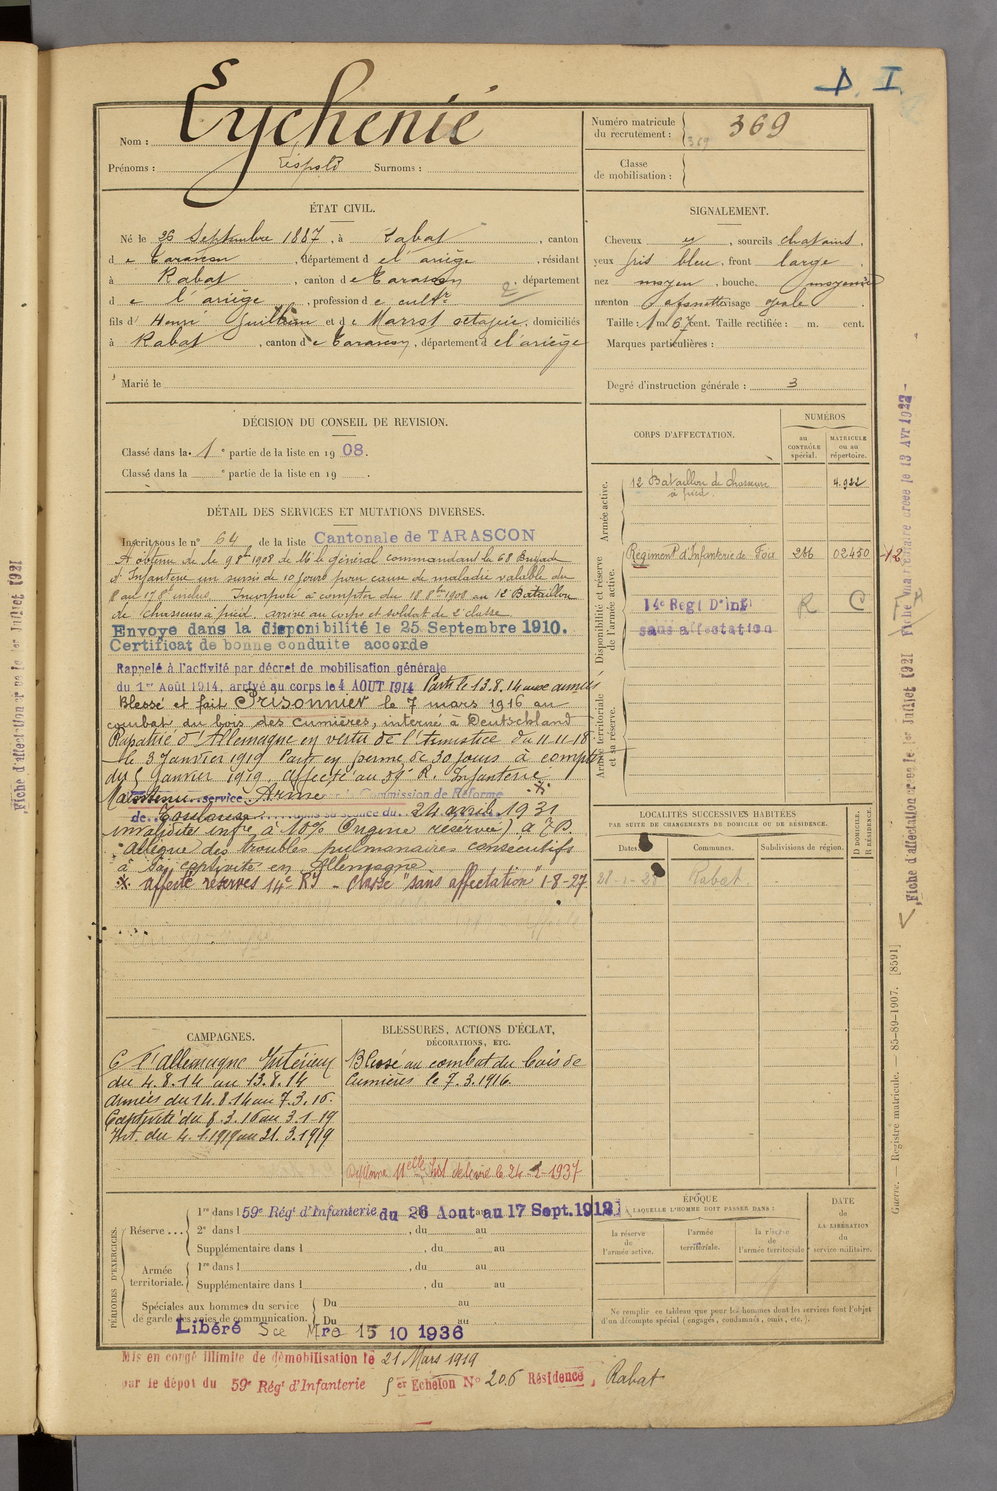 D. I.
Nom : Eychenié
Prénoms : Léopold Surnoms :
Numéro matricule du recrutement : 369
369
Classe de mobilisation :
ÉTAT CIVIL.
Né le 26 Septembre 1887, à Rabat, canton
de Tarascon, département de l'ariège, résidant
à Rabat, canton de Tarascon, département
de l'ariège, profession de cultr
fils d' Henri Guilhem et de Marrot octavie, domiciliés
à Rabat, canton de Tarascon, département de l'ariège
Marié le
SIGNALEMENT.
Cheveux et, sourcils chatains.
yeux gris bleu. front large
nez moyen, bouche. moyenne
menton à fossette visage ovale
Taille : 1 m. 67 cent. Taille rectifiée : m. cent.
Marques particulières :
Degré d'instruction générale : 3
DÉCISION DU CONSEIL DE REVISION.
Classé dans la 1e partie de la liste en 1908.
Classé dans la e partie de la liste en 19 .
DÉTAIL DES SERVICES ET MUTATIONS DIVERSES.
Inscrit sous le n° 64 de la liste Cantonale de TARASCON
A obtenu de le 9 8bre 1908 de Mr le général commandant la 68 Brigade
d'Infanterie un sursis de 10 jours pour cause de maladie valable du
8 au 17 8bre inclus. Incorporé à compter du 18 8bre 1908 au 12 Bataillon
de chasseurs à pied, arrivé au corps et soldat de 2e classe
Envoyé dans la disponibilité le 25 Septembre 1910.
Certificat de bonne conduite accordé
Rappelé à l'activité par décret de mobilisation générale
du 1er Août 1914, arrivé au corps le 4 AOUT 1914 Parti le 13.8.14 aux armées
Blessé et fait Prisonnier le 7 mars 1916 au
combat du bois des Cumières, interné à Deutschland
Rapatrié d'Allemagne en vertu de l'Armistice du 11 11 18
le 3 Janvier 1919 Parti en perme de 30 jours à compter
du 5 Janvier 1919, affecté au 59e R. Infanterie
Maintenu service Armé par la Commission de Réforme
de Toulouse dans sa séance du 24 avril 1931
invalidité infre à 10% (Origine réservée) à 7B.
"Allègue des troubles pulmonaires consécutifs
à sa captivité en Allemagne
* affecté réserves 14e RI - classé "sans affectation" 1-8-27
CORPS D'AFFECTATION.
NUMÉROS
au CONTRÔLE spécial.
MATRICULE ou au répertoire.
Armée active.
12 Bataillon de chasseurs à pied
4.922
Disponibilité et réserve de l'armée active.
Régiment d'Infanterie de Foix 266 02450
12
14e Regt D'Inf
sans affectation
R C
Armée territoriale et sa réserve.
LOCALITÉS SUCCESSIVES HABITÉES
PAR SUITE DE CHANGEMENTS DE DOMICILE OU DE RÉSIDENCE.
Dates. Communes. Subdivisions de région. D DOMICILE. R RÉSIDENCE.
Rabat.
CAMPAGNES.
C. l'allemagne Intérieur
du 4.8.14 au 13.8.14
Armées du 14.8.14 au 7.3.16.
Captivité du 8.3.16 au 3-1-19
Int. du 4.1.1919 au 21.3.1919
BLESSURES, ACTIONS D'ÉCLAT,
DÉCORATIONS, ETC.
Blessé au combat du bois de
Cumières le 7.3.1916.
PÉRIODES D'EXERCICES.
Réserve...
1re dans l 59e Régt d'Infanterie du 26 Aout au 17 Sept. 1912
2e dans l , du au
Supplémentaire dans l , du au
Armée territoriale.
1re dans l , du au
Supplémentaire dans l , du au
Spéciales aux hommes du service de garde des voies de communication.
Du au
Du au
Libéré Sce Mre 15 10 1936
ÉPOQUE
À LAQUELLE L'HOMME DOIT PASSER DANS :
la réserve de l'armée active.
l'armée territoriale.
la réserve de l'armée territoriale
DATE de LA LIBÉRATION du service militaire.
Ne remplir ce tableau que pour les hommes dont les services font l'objet
d'un décompte spécial (engagés, condamnés, omis, etc.).
Mis en congé illimité de démobilisation le 21 Mars 1919
par le dépôt du 59e Régt d'Infanterie 5er Echelon N° 206 Résidence, Rabat
Fiche d'affectation créée le 1er Juillet 1921
Guerre. — Registre matricule. — 85-89-1907. [8591]